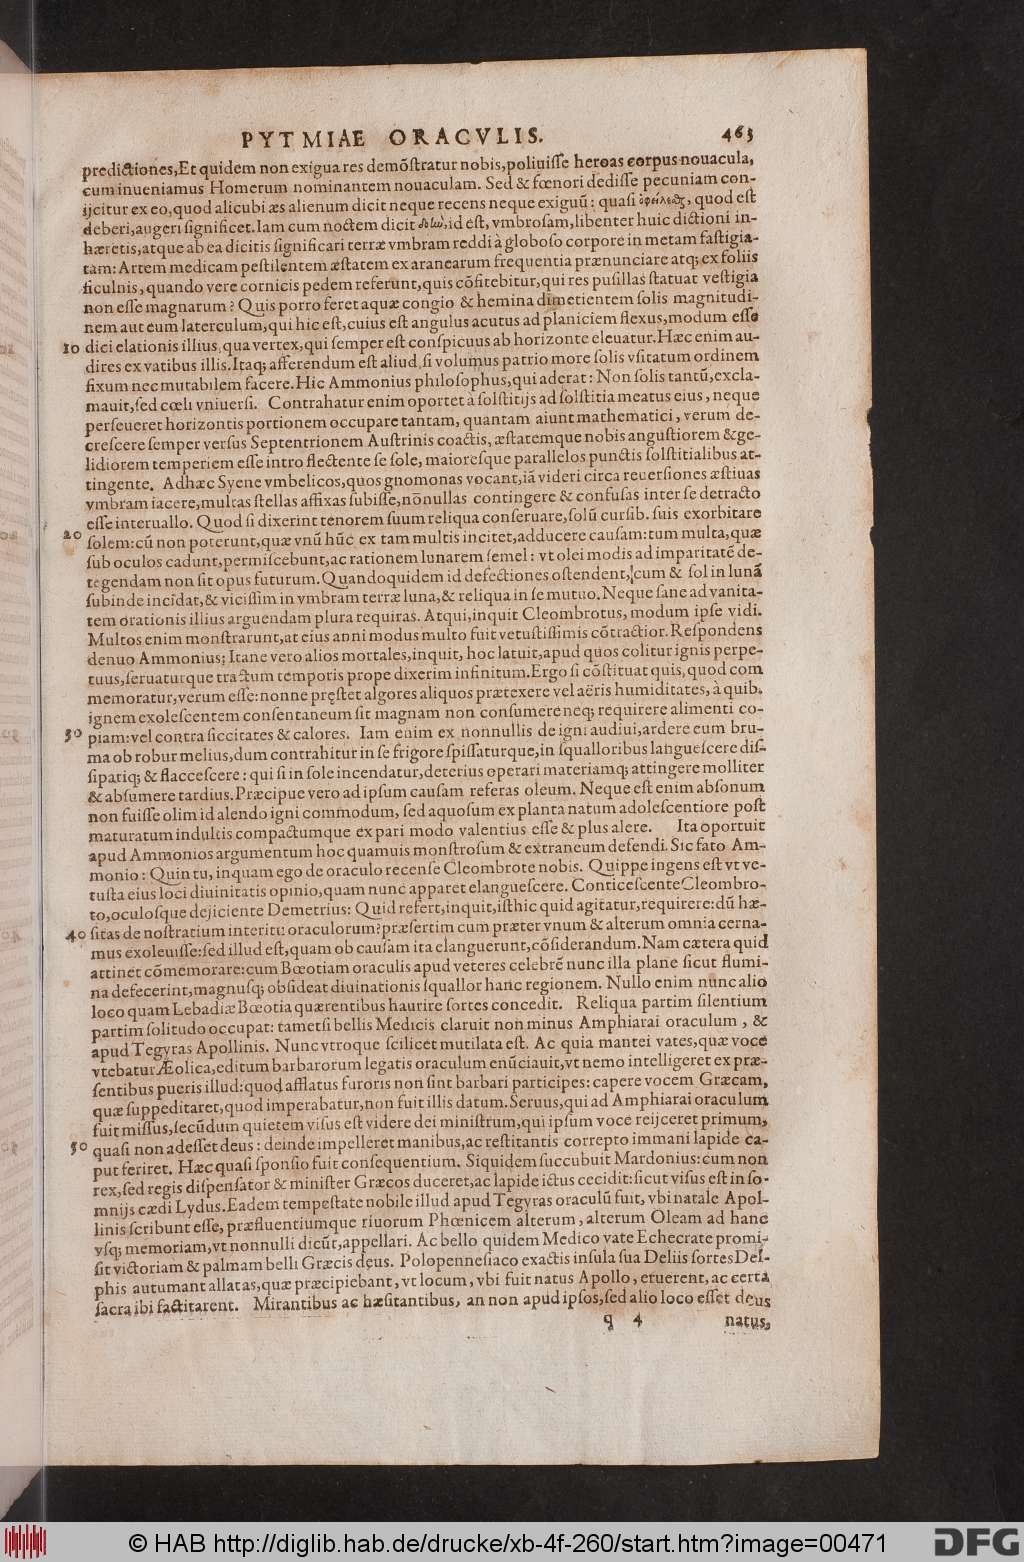 PYTMIAE ORACVLIS. 463
predictiones, Et quidem non exigua res demõstratur nobis, poliuisse heroas corpus nouacula,
cum inueniamus Homerum nominantem nouaculam. Sed & fœnori dedisse pecuniam con-
ijcitur ex eo, quod alicubi æs alienum dicit neque recens neque exiguũ: quasi quod est
deberi, augeri significet. Iam cum noctem dicit id est, vmbrosam, libenter huic dictioni in-
hæretis, atque ab ea dicitis significari terræ vmbram reddi à globoso corpore in metam fastigia-
tam: Artem medicam pestilentem æstatem ex aranearum frequentia prænunciare atq; ex foliis
ficulnis, quando vere cornicis pedem referunt, quis cõfitebitur, qui res pusillas statuat vestigia
non esse magnarum? Quis porro feret aquæ congio & hemina dimetientem solis magnitudi-
nem aut eum laterculum, qui hic est, cuius est angulus acutus ad planiciem flexus, modum esse
10 dici elationis illius, qua vertex, qui semper est conspicuus ab horizonte eleuatur. Hæc enim au-
dires ex vatibus illis. Itaq; afferendum est aliud, si volumus patrio more solis vsitatum ordinem
fixum nec mutabilem facere. Hic Ammonius philosophus, qui aderat: Non solis tantũ, excla-
mauit, sed cœli vniuersi. Contrahatur enim oportet à solstitijs ad solstitia meatus eius, neque
perseueret horizontis portionem occupare tantam, quantam aiunt mathematici, verum de-
crescere semper versus Septentrionem Austrinis coactis, æstatemque nobis angustiorem & ge-
lidiorem temperiem esse intro flectente se sole, maioresque parallelos punctis solstitialibus at-
tingente. Adhæc Syene vmbelicos, quos gnomonas vocant, iã videri circa reuersiones æstiuas
vmbram iacere, multas stellas affixas subisse, nõnullas contingere & confusas inter se detracto
esse interuallo. Quod si dixerint tenorem suum reliqua conseruare, solũ cursib. suis exorbitare
20 solem: cũ non poterunt, quæ vnũ hũc ex tam multis incitet, adducere causam: tum multa, quæ
sub oculos cadunt, permiscebunt, ac rationem lunarem semel: vt olei modis ad imparitatẽ de-
tegendam non sit opus futurum. Quandoquidem id defectiones ostendent, cum & sol in lunã
subinde incidat, & vicissim in vmbram terræ luna, & reliqua in se mutuo. Neque sane ad vanita-
tem orationis illius arguendam plura requiras. Atqui, inquit Cleombrotus, modum ipse vidi.
Multos enim monstrarunt, at eius anni modus multo fuit vetustissimis cõtractior. Respondens
denuo Ammonius; Itane vero alios mortales, inquit, hoc latuit, apud quos colitur ignis perpe-
tuus, seruaturque tractum temporis prope dixerim infinitum. Ergo si cõstituat quis, quod com
memoratur, verum esse: nonne pręstet algores aliquos prætexere vel aëris humiditates, à quib.
ignem exolescentem consentaneum sit magnam non consumere neq; requirere alimenti co-
30 piam: vel contra siccitates & calores. Iam enim ex nonnullis de igni audiui, ardere eum bru-
ma ob robur melius, dum contrahitur in se frigore spissaturque, in squalloribus languescere dis-
sipariq; & flaccescere: qui si in sole incendatur, deterius operari materiamq; attingere molliter
& absumere tardius. Præcipue vero ad ipsum causam referas oleum. Neque est enim absonum
non fuisse olim id alendo igni commodum, sed aquosum ex planta natum adolescentiore post
maturatum indultis compactumque ex pari modo valentius esse & plus alere. Ita oportuit
apud Ammonios argumentum hoc quamuis monstrosum & extraneum defendi. Sic fato Am-
monio: Quin tu, inquam ego de oraculo recense Cleombrote nobis. Quippe ingens est vt ve-
tusta eius loci diuinitatis opinio, quam nunc apparet elanguescere. Conticescente Cleombro-
to, oculosque dejiciente Demetrius: Quid refert, inquit, isthic quid agitatur, requirere: dũ hæ-
40 sitas de nostratium interitu oraculorum? præsertim cum præter vnum & alterum omnia cerna-
mus exoleuisse: sed illud est, quam ob causam ita elanguerunt, cõsiderandum. Nam cætera quid
attinet cõmemorare: cum Bœotiam oraculis apud veteres celebrẽ nunc illa plane sicut flumi-
na defecerint, magnusq; obsideat diuinationis squallor hanc regionem. Nullo enim nunc alio
loco quam Lebadiæ Bœotia quærentibus haurire sortes concedit. Reliqua partim silentium
partim solitudo occupat: tametsi bellis Medicis claruit non minus Amphiarai oraculum, &
apud Tegyras Apollinis. Nunc vtroque scilicet mutilata est. Ac quia mantei vates, quæ voce
vtebatur Æolica, editum barbarorum legatis oraculum enũciauit, vt nemo intelligeret ex præ-
sentibus pueris illud: quod afflatus furoris non sint barbari participes: capere vocem Græcam,
quæ suppeditaret, quod imperabatur, non fuit illis datum. Seruus, qui ad Amphiarai oraculum
fuit missus, secũdum quietem visus est videre dei ministrum, qui ipsum voce reijceret primum,
50 quasi non adesset deus: deinde impelleret manibus, ac restitantis correpto immani lapide ca-
put feriret. Hæc quasi sponsio fuit consequentium. Siquidem succubuit Mardonius: cum non
rex, sed regis dispensator & minister Græcos duceret, ac lapide ictus cecidit: sicut visus est in so-
mnijs cædi Lydus. Eadem tempestate nobile illud apud Tegyras oraculũ fuit, vbi natale Apol-
linis scribunt esse, præfluentiumque riuorum Phœnicem alterum, alterum Oleam ad hanc
vsq; memoriam, vt nonnulli dicũt, appellari. Ac bello quidem Medico vate Echecrate promi-
sit victoriam & palmam belli Græcis deus. Polopennesiaco exactis insula sua Deliis sortes Del-
phis autumant allatas, quæ præcipiebant, vt locum, vbi fuit natus Apollo, eruerent, ac certa
sacra ibi factitarent. Mirantibus ac hæsitantibus, an non apud ipsos, sed alio loco esset deus
q 4 natus,
© HAB http://diglib.hab.de/drucke/xb-4f-260/start.htm?image=00471
DFG